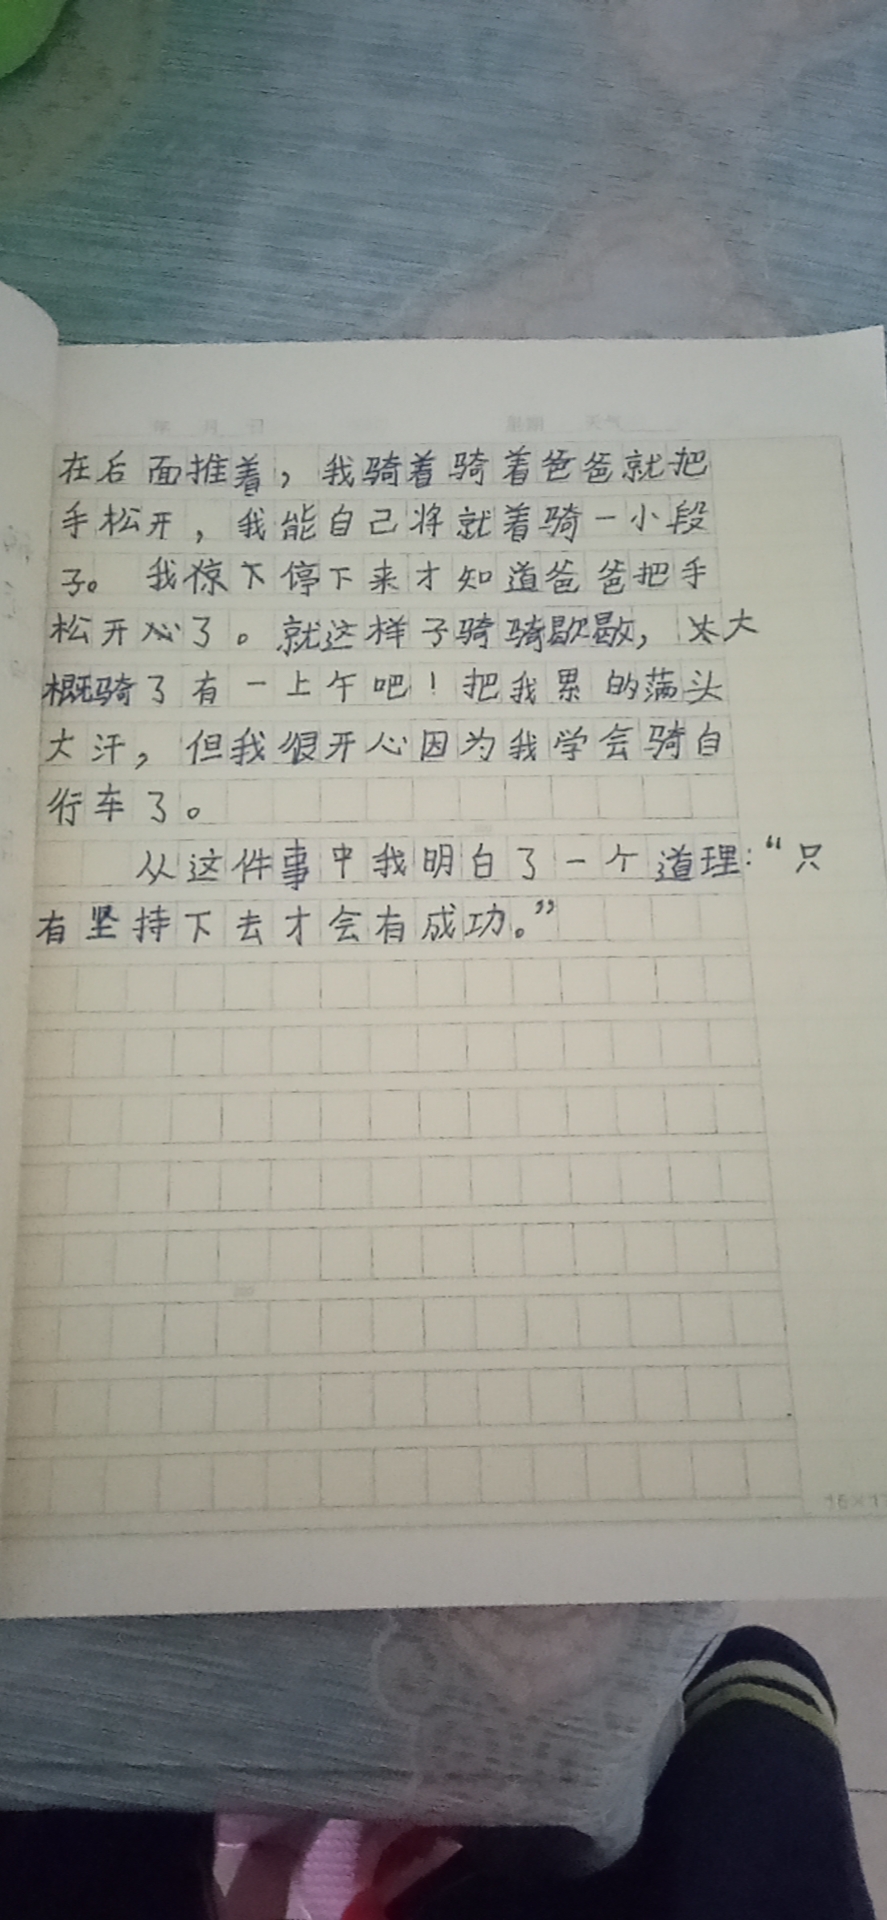 年 月 日 星期 天气
在后面推着，我骑着骑着爸爸就把
手松开，我能自己将就着骑一小段
子。我惊下停下来才知道爸爸把手
松开了。就这样子骑骑歇歇，大
概骑了有一上午吧！把我累的满头
大汗，但我很开心因为我学会骑自
行车了。
从这件事中我明白了一个道理：“只
有坚持下去才会有成功。”